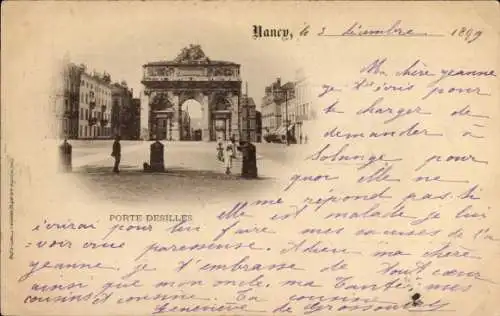 Nancy, le 3 décembre 1899
Ma chère jeanne
je t'écris pour
te charger de
demander à
Solange pour
quoi elle ne
me répond pas. Si
PORTE DESILLES
Elle est malade je lui
écrirai pour lui faire mes excuses de l'a
=voir crue paresseuse. Adieu ma chère
jeanne. je t'embrasse de tout cœur
ainsi que mon oncle, ma Tante, mes
cousins et cousine. Ta cousine
Geneviève de